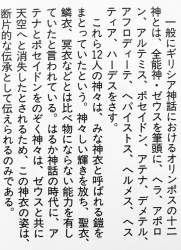 一般にギリシア神話におけるオリンポスの十二
神とは、全能神・ゼウスを筆頭に、ヘラ、アポロ
ン、アルテミス、ポセイドン、アテナ、デメテル、
アフロディーテ、ヘパイストス、ヘルメス、ヘス
ティア、ハーデスをさす。
これら12人の神々は、みな神衣と呼ばれる鎧を
まとっていたという。神々しい輝きを放ち、聖衣、
鱗衣、冥衣などとは比べ物にならない能力を有し
ていたと言われている。はるか神話の時代に、ア
テナとポセイドンをのぞく神々は、ゼウスと共に
天空へと消失したとされるため、この神衣の姿は、
断片的な伝承として伝えられるのみである。